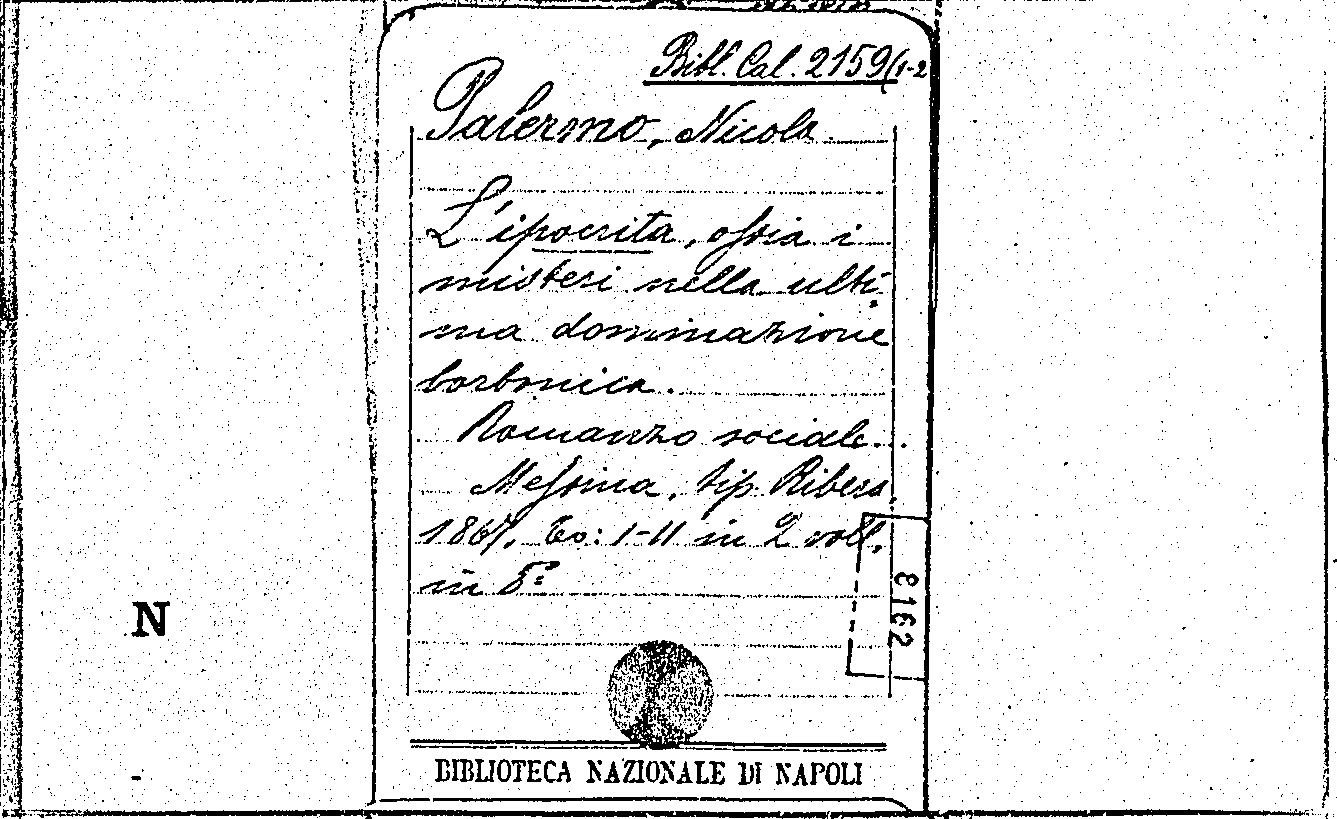 Bibl. Cal. 2159(1-2
Palermo, Nicola
L'ipocrita, ossia i
misteri nella ulti
ma dominazione
borbonica.
Romanzo sociale.
Messina, tip. Ribera,
1867. To: I-II in 2 voll.
in 8º
8162
N
BIBLIOTECA NAZIONALE DI NAPOLI